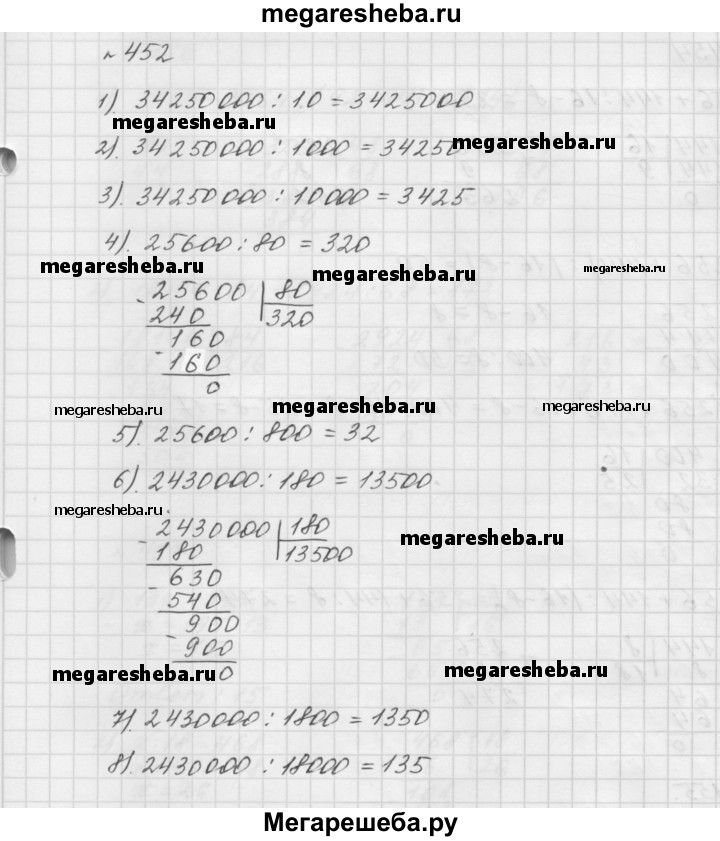 megaresheba.ru
№ 452
1). 34250000 : 10 = 3425000
megaresheba.ru
2). 34250000 : 1000 = 34250
megaresheba.ru
3). 34250000 : 10000 = 3425
4). 25600 : 80 = 320
megaresheba.ru
megaresheba.ru
megaresheba.ru
- 25600 | 80
240 320
160
- 160
0
megaresheba.ru
megaresheba.ru
megaresheba.ru
5). 25600 : 800 = 32
6). 2430000 : 180 = 13500.
megaresheba.ru
- 2430000 | 180
180 13500
megaresheba.ru
- 630
540
- 900
900
0
megaresheba.ru
megaresheba.ru
7). 2430000 : 1800 = 1350
8). 2430000 : 18000 = 135
Мегарешеба.ру